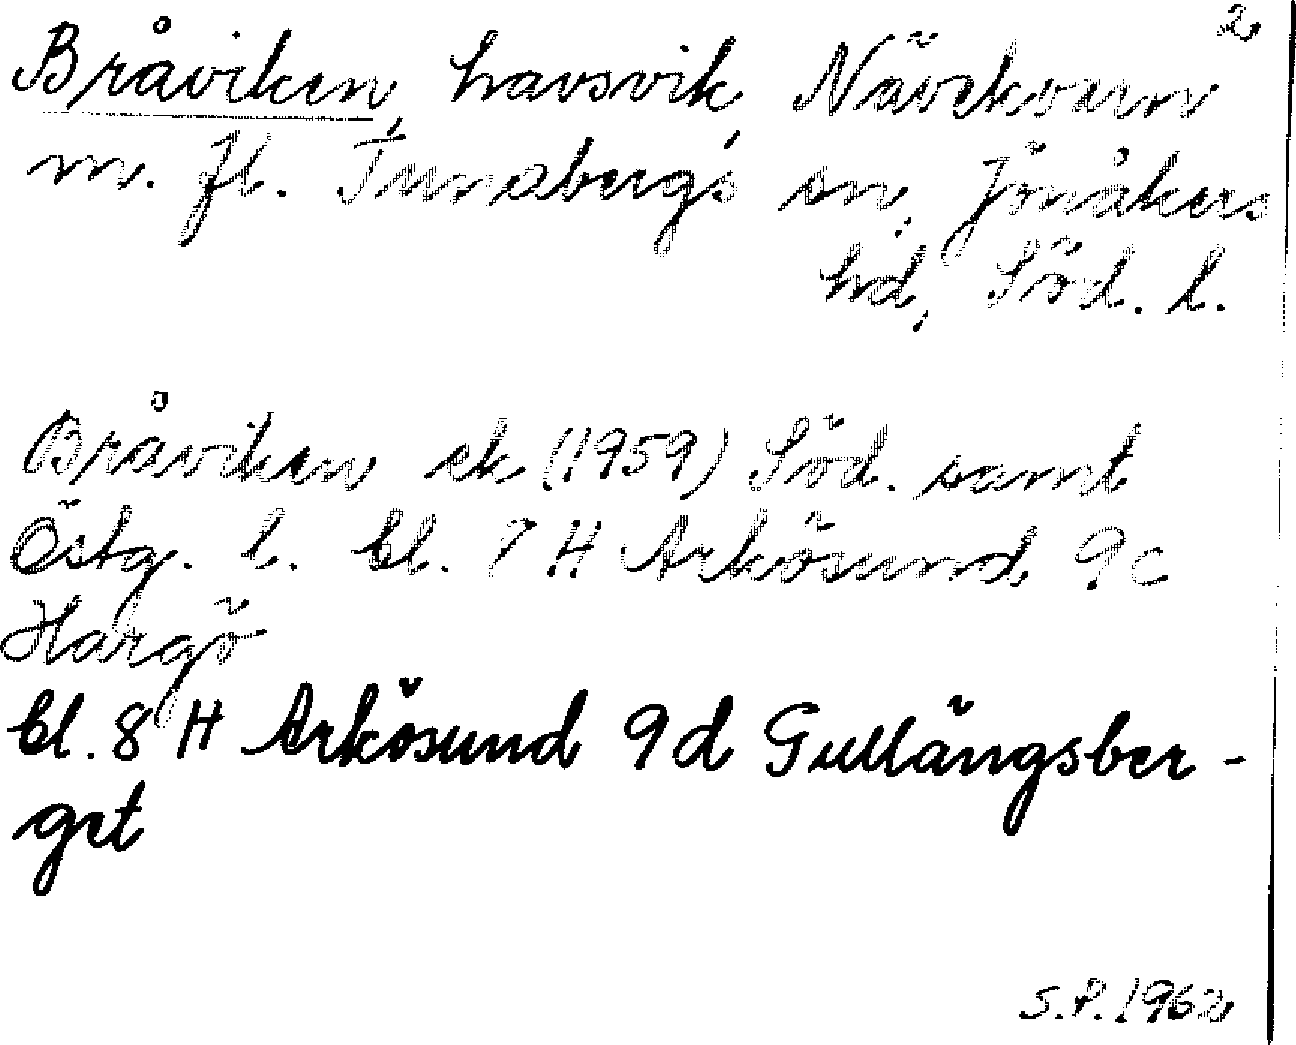 2
Bråviken, havsvik, Nävekvarn
m. fl. Tunabergs sn, Jönåkers
hd, Söd. l.
Bråviken ek (1959) Söd. samt
Östg. l. bl. 7 H Arkösund 9c
Hargö
bl. 8 H Arkösund 9d Gullängsber-
get
S.P. 1962